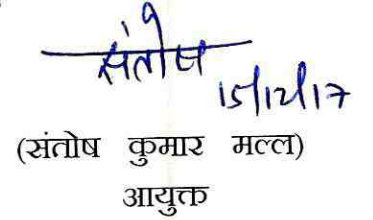 संतोष
15/12/17
(संतोष कुमार मल्ल)
आयुक्त